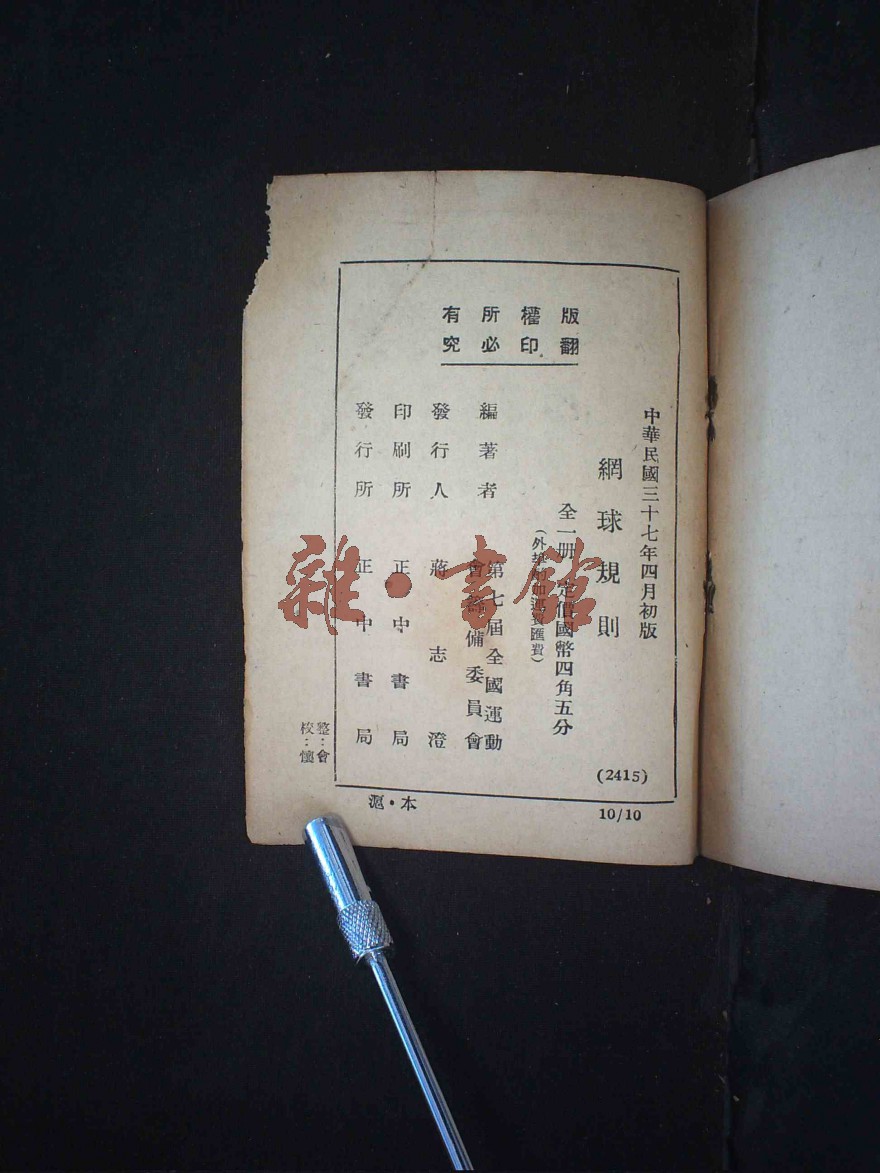 中華民國三十七年四月初版
網球規則
全一册 定價國幣四角五分
(外埠酌加運費匯費)
版權所有
翻印必究
編著者 第七屆全國運動
會籌備委員會
發行人 蔣志澄
印刷所 正中書局
發行所 正中書局
(2415)
整：會
校：懷
滬・本
10/10
雜・書館